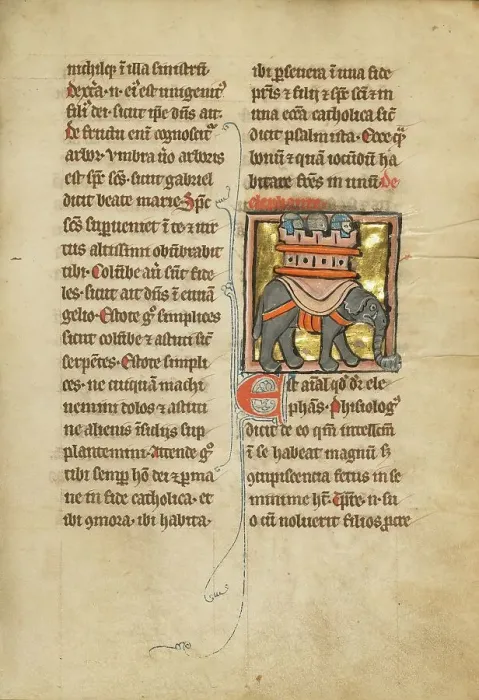 nichilq; ĩ illa sinistrũ.
Dextᷓa·n·ei͛ est unigenit⁹
fili⁹ dei· sicut ip̃e dñs ait·
De fructu enĩ cognoscit᷑
arbor· Vmbra ũo arboris
est sp̃c sc̃s· sicut gabriel
dicit beate marie· Sp̃c
sc̃s sup̃ueniet ĩ te ⁊ uir
tus altissimi obũbrabit
tibi· Colũbe aũ sũt fide
les· sicut ait dñs ĩ euuã
gelio· Estote g͛ simplices
sicut colũbe ⁊ astuti sic̃
serpẽtes· Estote simpli
ces· ne cuiquã machi
nemini dolos ⁊ astuti
ne alienis ĩsidiis sup
plantemini· Attende g͛
tibi semp̱ hõ dei ⁊ p̱ma
ne in fide catholica· et
ibi ꝯmora· ibi habita·
ibi p̱seuera ĩ una fide
pr̃is ⁊ filii ⁊ sp̃c sc̃i ⁊ in
una ecc̃a catholica sic̃
dicit psalmista· Ecce q̃
bonũ ⁊ quã iocũdũ ha
bitare fr̃es in unũ· De
elephante
Est aĩal qd̕ d͛r ele
phãs· Phisiolog⁹
dicit de eo qm̃ intellectũ
ĩ se habeat magnũ ſꝫ
ꝯcupiscentia fetus in se
minime hr̃· Tp̃re· n· su
o cũ uoluerit filios p̱cre